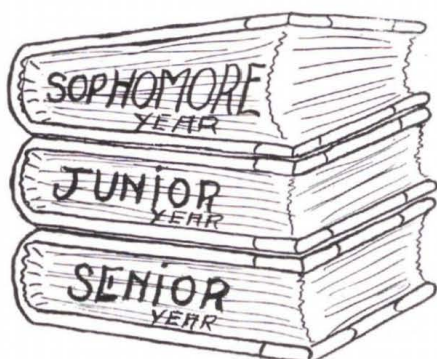 SOPHOMORE
YEAR
JUNIOR
YEAR
SENIOR
YEAR